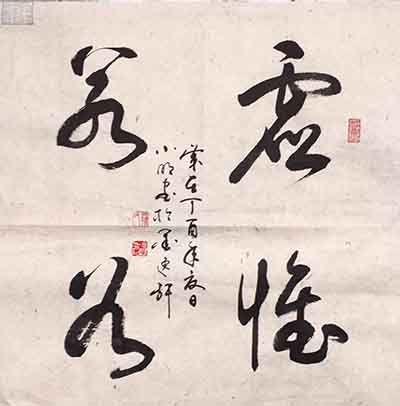 虛懷
若谷
歲在丁酉年夏日
小明書於墨軒